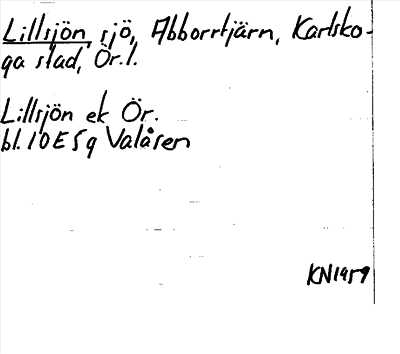 Lillsjön sjö, Abborrtjärn, Karlsko-
ga stad, Ör. l.
Lillsjön ek Ör.
bl. 10E5g Valåsen
KN1959